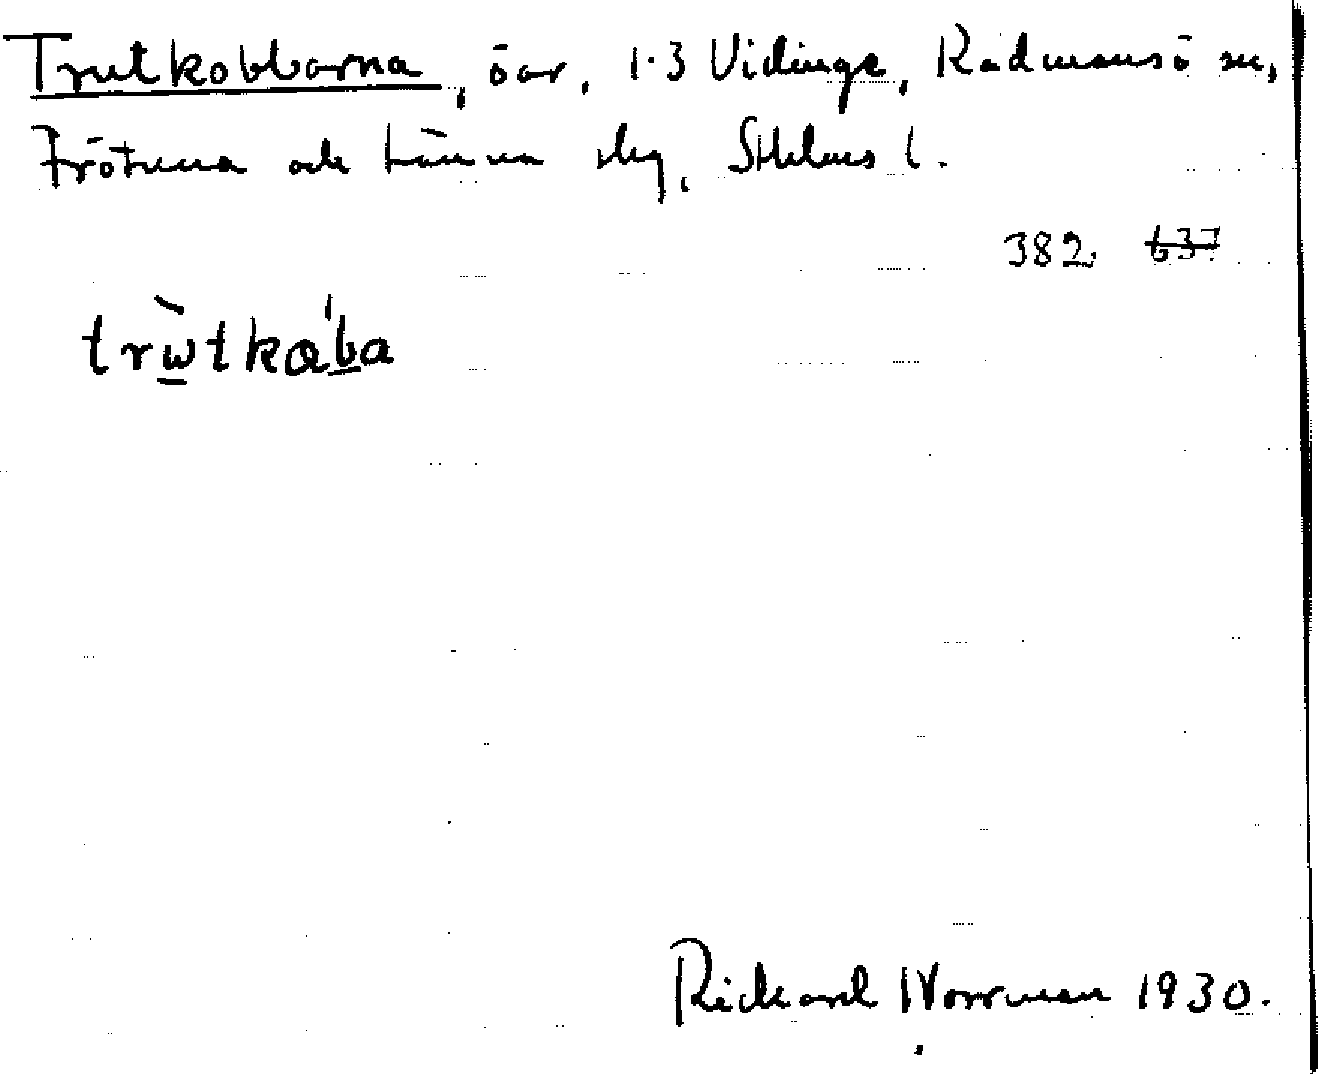 Trutkobbarna, öar, 1-3 Vidinge, Rådmansö sn,
Frötuna och Länna skg, Sthlms l.
382 637
trùtka'ba
Rickard Norrman 1930.